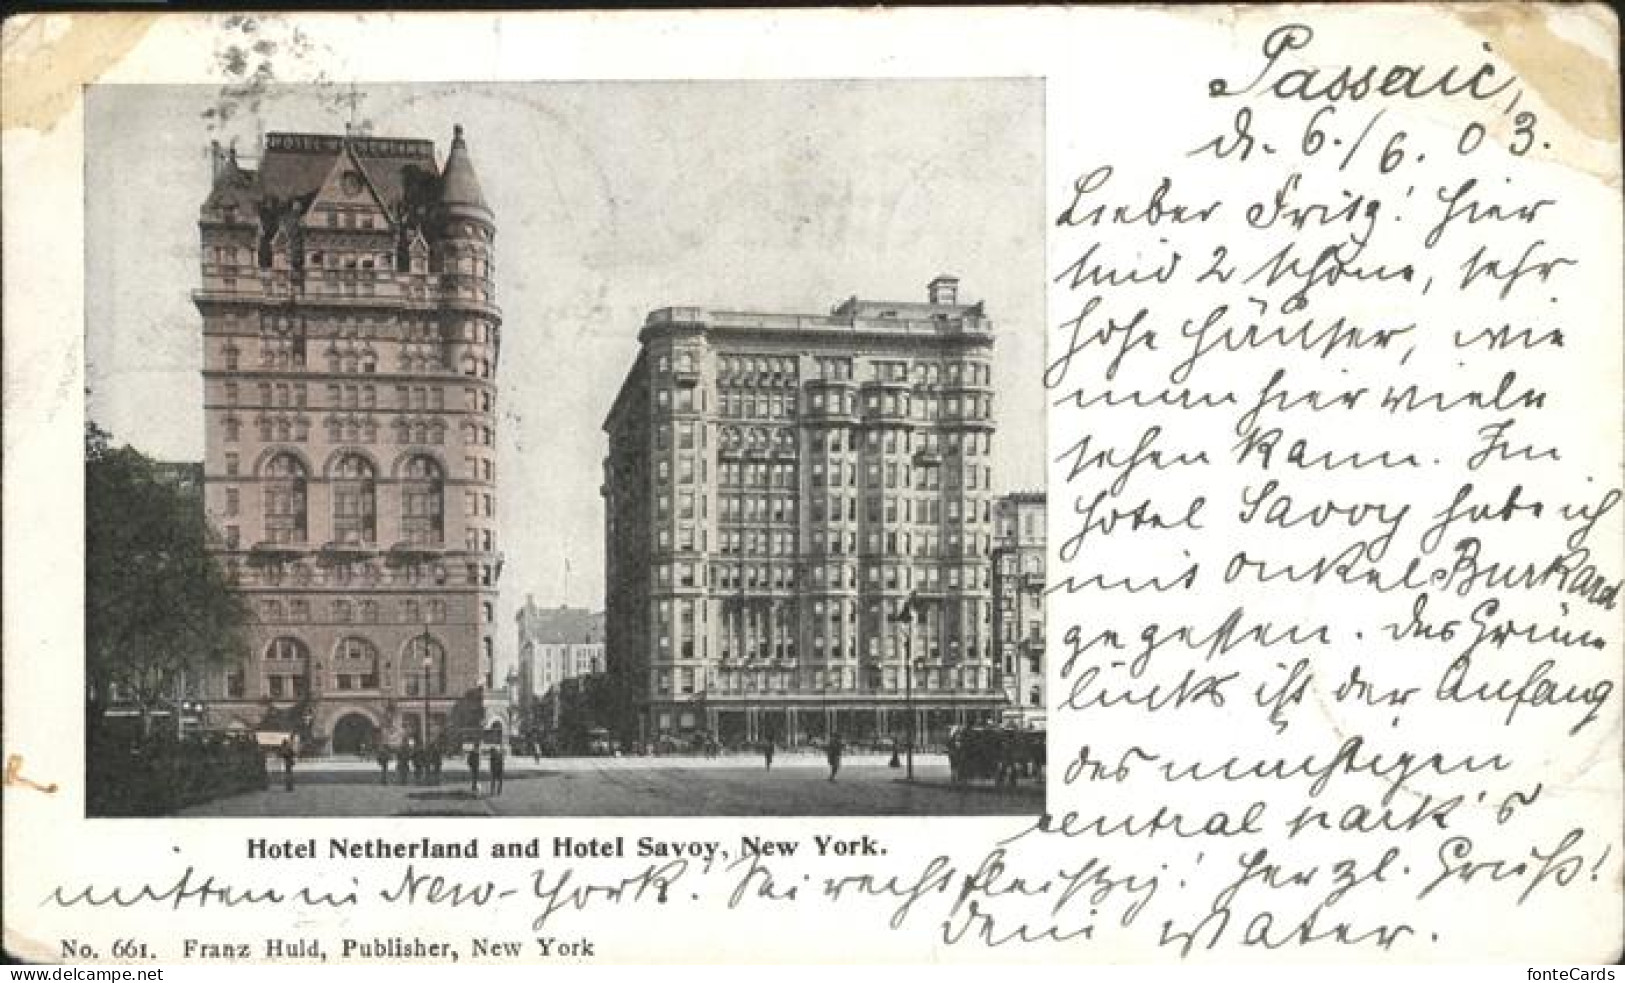 HOTEL NETHERLAND
Passaic,
d. 6./6. 03.
Lieber Fritz! Hier
sind 2 schöne, sehr
hohe Häuser, wie
man hier viele
sehen kann. Im
Hotel Savoy habe ich
mit Onkel Burkard
gegessen. Das Grüne
links ist der Anfang
des mächtigen
Central Park's
mitten in New-York! Sei recht fleißig! Herzl. Gruß!
dein Vater.
Hotel Netherland and Hotel Savoy, New York.
No. 661. Franz Huld, Publisher, New York
fonteCards